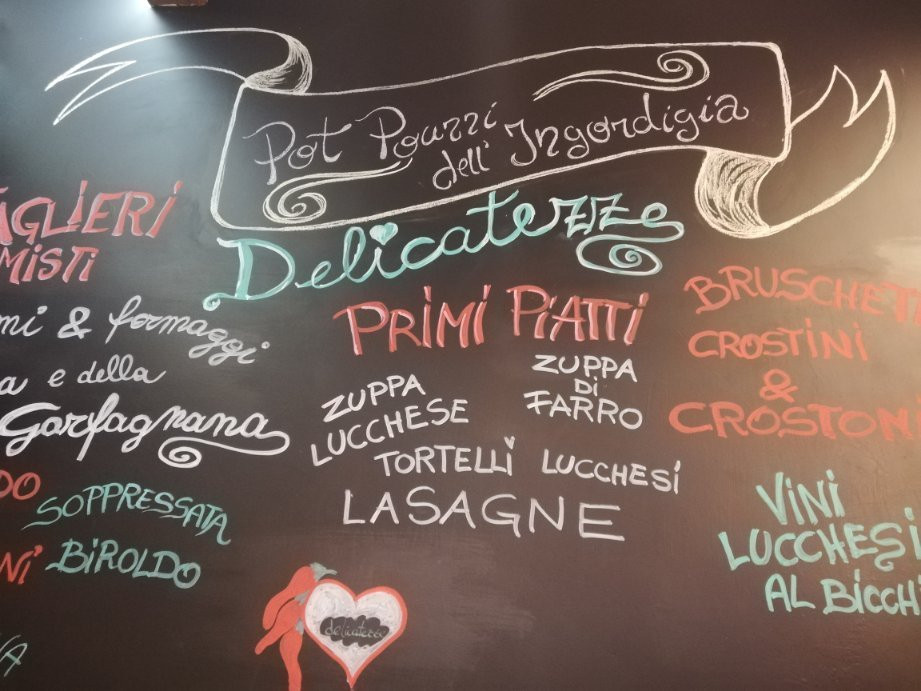 Pot Pourri
dell' Ingordigia
Delicatezze
TAGLIERI
MISTI
mi & formaggi
a e della
Garfagnana
DO
SOPPRESSATA
NI BIROLDO
VA
PRIMI PIATTI
ZUPPA
LUCCHESE
ZUPPA
DI
FARRO
TORTELLI LUCCHESI
LASAGNE
delicatezze
BRUSCHET
CROSTINI
&
CROSTON
VINI
LUCCHESI
AL BICCHI